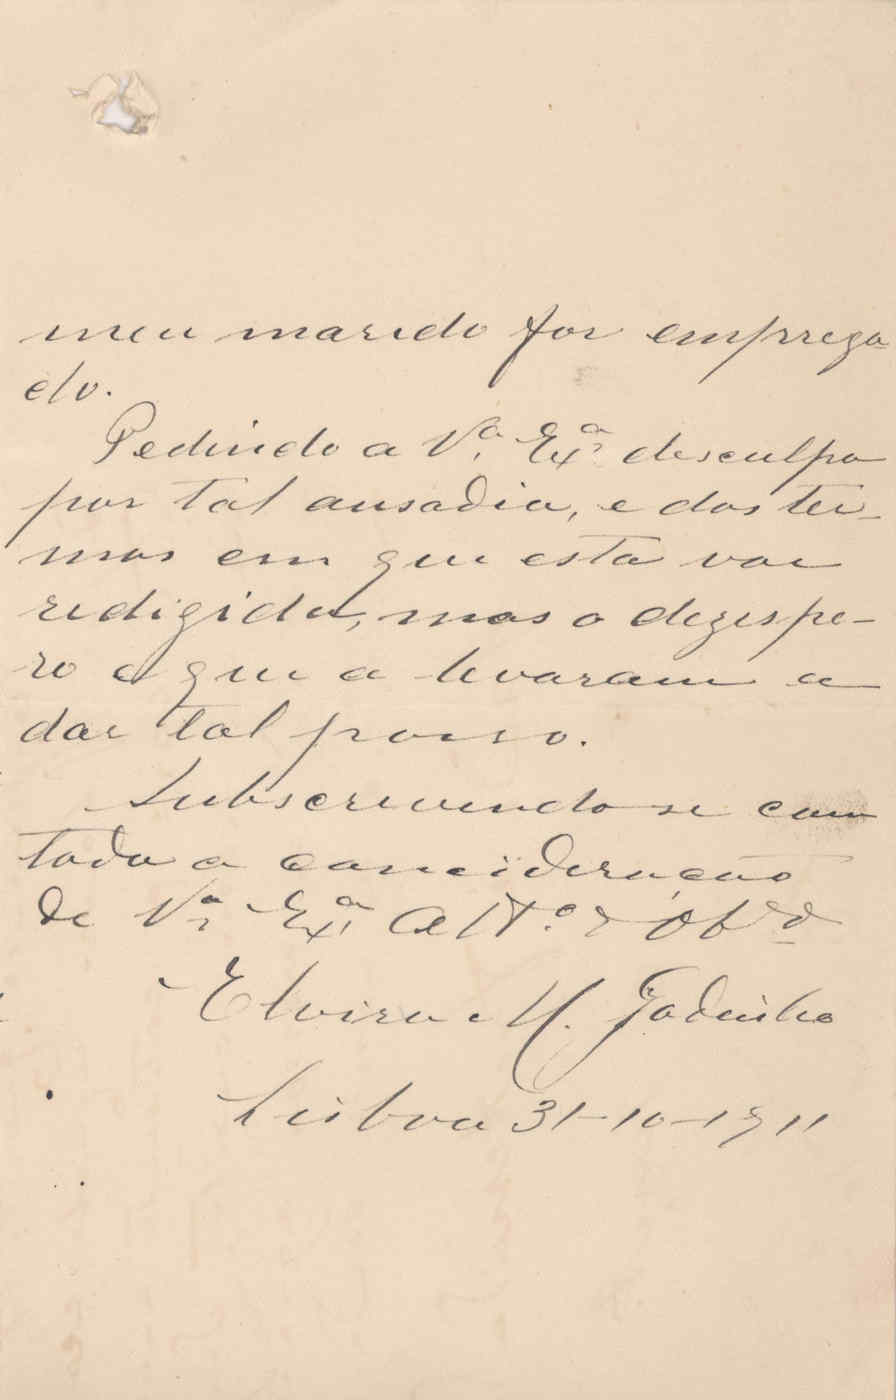 meu marido for emprega-
do.
Pedindo a Vª. Exª. desculpa
por tal ausadia, e dos ter-
mos em que esta vae
redigida, mas o dezespe-
ro é que a levaram a
dar tal passo.
Subscrevendo se com
toda a concideração
de Vª. Exª. Attº. Obrdº
Elvira M. Godinho
Lisboa 31-10-1911